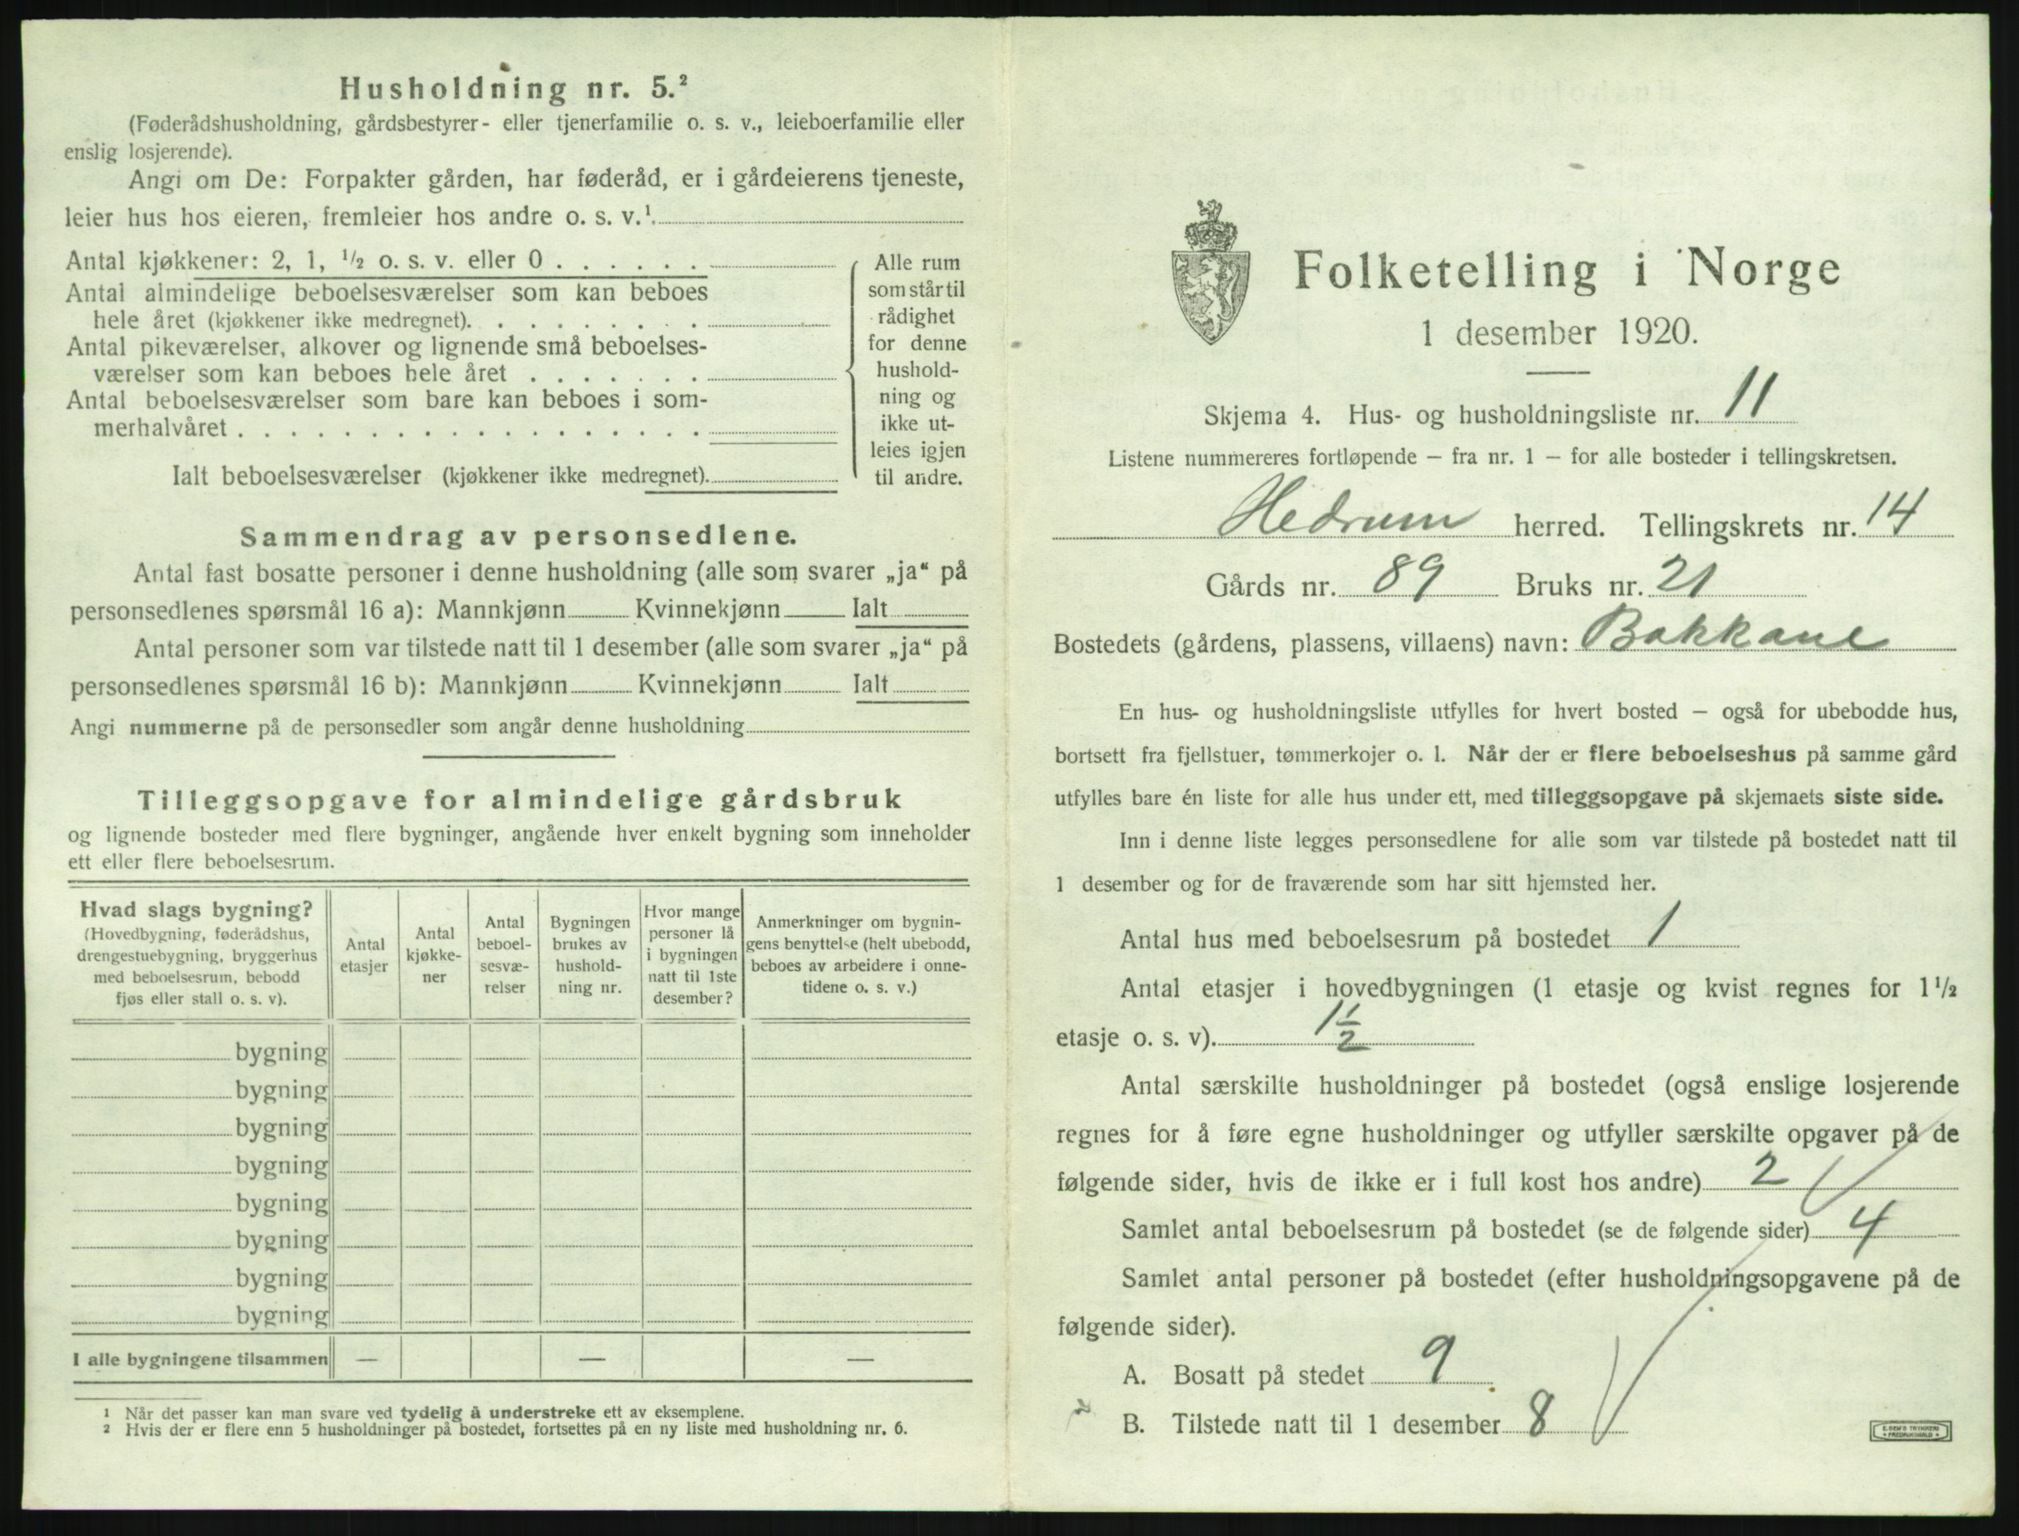 Husholdning nr. 5.²
(Føderådshusholdning, gårdsbestyrer- eller tjenerfamilie o. s. v., leieboerfamilie eller
enslig losjerende).
Angi om De: Forpakter gården, har føderåd, er i gårdeierens tjeneste,
leier hus hos eieren, fremleier hos andre o. s. v.¹
Antal kjøkkener: 2, 1, ½ o. s. v. eller 0 . . . . . .
Antal almindelige beboelsesværelser som kan beboes
hele året (kjøkkener ikke medregnet). . . . . . . . .
Antal pikeværelser, alkover og lignende små beboelses-
værelser som kan beboes hele året . . . . . . .
Antal beboelsesværelser som bare kan beboes i som-
merhalvåret . . . . . . . . . . . . . . . . . .
Ialt beboelsesværelser (kjøkkener ikke medregnet).
Alle rum
som står til
rådighet
for denne
hushold-
ning og
ikke ut-
leies igjen
til andre.
Sammendrag av personsedlene.
Antal fast bosatte personer i denne husholdning (alle som svarer „ja“ på
personsedlenes spørsmål 16 a): Mannkjønn Kvinnekjønn Ialt
Antal personer som var tilstede natt til 1 desember (alle som svarer „ja“ på
personsedlenes spørsmål 16 b): Mannkjønn Kvinnekjønn Ialt
Angi nummerne på de personsedler som angår denne husholdning
Tilleggsopgave for almindelige gårdsbruk
og lignende bosteder med flere bygninger, angående hver enkelt bygning som inneholder
ett eller flere beboelsesrum.
Hvad slags bygning?
(Hovedbygning, føderådshus,
drengestuebygning, bryggerhus
med beboelsesrum, bebodd
fjøs eller stall o. s. v).
Antal
etasjer
Antal
kjøkke-
ner
Antal
beboel-
sesvæ-
relser
Bygningen
brukes av
hushold-
ning nr.
Hvor mange
personer lå
i bygningen
natt til 1ste
desember?
Anmerkninger om bygnin-
gens benyttelse (helt ubebodd,
beboes av arbeidere i onne-
tidene o. s. v.)
bygning
bygning
bygning
bygning
bygning
bygning
bygning
bygning
I alle bygningene tilsammen — — —
¹ Når det passer kan man svare ved tydelig å understreke ett av eksemplene.
² Hvis der er flere enn 5 husholdninger på bostedet, fortsettes på en ny liste med husholdning nr. 6.
Folketelling i Norge
1 desember 1920.
Skjema 4. Hus- og husholdningsliste nr. 11
Listene nummereres fortløpende — fra nr. 1 — for alle bosteder i tellingskretsen.
Hedrum herred. Tellingskrets nr. 14
Gårds nr. 89 Bruks nr. 21
Bostedets (gårdens, plassens, villaens) navn: Bakkane
En hus- og husholdningsliste utfylles for hvert bosted — også for ubebodde hus,
bortsett fra fjellstuer, tømmerkojer o. l. Når der er flere beboelseshus på samme gård
utfylles bare én liste for alle hus under ett, med tilleggsopgave på skjemaets siste side.
Inn i denne liste legges personsedlene for alle som var tilstede på bostedet natt til
1 desember og for de fraværende som har sitt hjemsted her.
Antal hus med beboelsesrum på bostedet 1
Antal etasjer i hovedbygningen (1 etasje og kvist regnes for 1½
etasje o. s. v). 1½
Antal særskilte husholdninger på bostedet (også enslige losjerende
regnes for å føre egne husholdninger og utfyller særskilte opgaver på de
følgende sider, hvis de ikke er i full kost hos andre) 2
Samlet antal beboelsesrum på bostedet (se de følgende sider) 4
Samlet antal personer på bostedet (efter husholdningsopgavene på de
følgende sider).
A. Bosatt på stedet 9
B. Tilstede natt til 1 desember 8